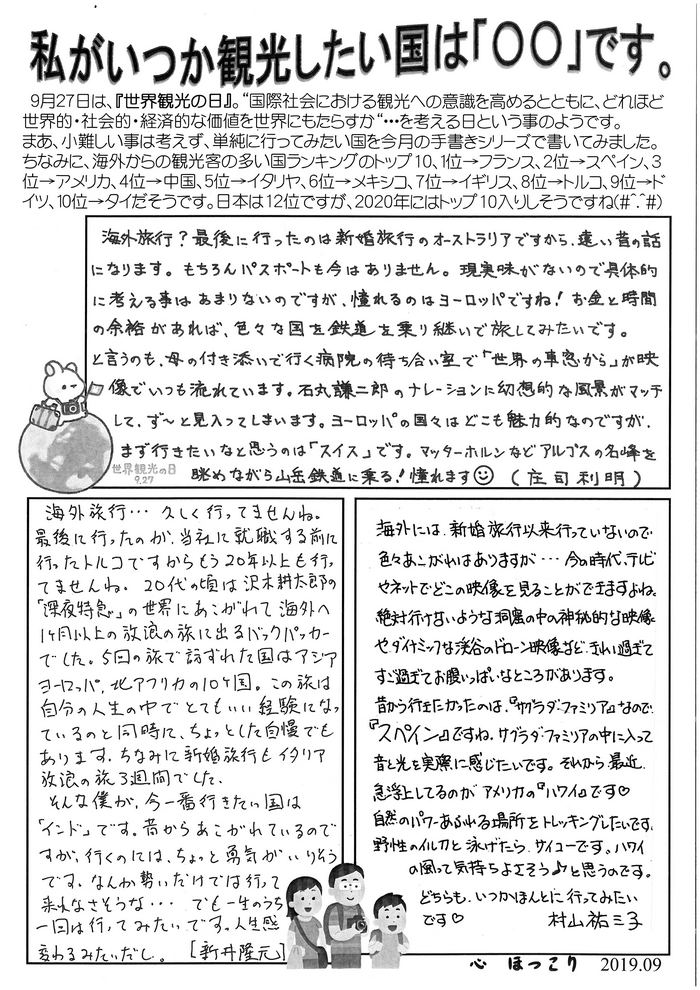 私がいつか観光したい国は「〇〇」です。
9月27日は、『世界観光の日』。“国際社会における観光への意識を高めるとともに、どれほど
世界的・社会的・経済的な価値を世界にもたらすか“…を考える日という事のようです。
まあ、小難しい事は考えず、単純に行ってみたい国を今月の手書きシリーズで書いてみました。
ちなみに、海外からの観光客の多い国ランキングのトップ10、1位→フランス、2位→スペイン、3
位→アメリカ、4位→中国、5位→イタリヤ、6位→メキシコ、7位→イギリス、8位→トルコ、9位→ド
イツ、10位→タイだそうです。日本は12位ですが、2020年にはトップ10入りしそうですね(#^.^#)
海外旅行？最後に行ったのは新婚旅行のオーストラリアですから、遠い昔の話
になります。もちろんパスポートも今はありません。現実味がないので具体的
に考える事はあまりないのですが、憧れるのはヨーロッパですね！お金と時間
の余裕があれば、色々な国を鉄道を乗り継いで旅してみたいです。
と言うのも、母の付き添いで行く病院の待ち合い室で「世界の車窓から」が映
像でいつも流れています。石丸謙二郎のナレーションに幻想的な風景がマッチ
して、ず〜と見入ってしまいます。ヨーロッパの国々はどこも魅力的なのですが、
まず行きたいなと思うのは「スイス」です。マッターホルンなどアルプスの名峰を
眺めながら山岳鉄道に乗る！憧れます☺（庄司利明）
世界観光の日
9.27
海外旅行… 久しく行ってませんね。
最後に行ったのが、当社に就職する前に
行ったトルコですからもう20年以上も行っ
てませんね。20代の頃は沢木耕太郎の
「深夜特急」の世界にあこがれて海外へ
1ヶ月以上の放浪の旅に出るバックパッカー
でした。5回の旅で訪ずれた国はアジア
ヨーロッパ、北アフリカの10ヶ国。この旅は
自分の人生の中でとてもいい経験になっ
ているのと同時に、ちょっとした自慢でも
あります。ちなみに新婚旅行もイタリア
放浪の旅3週間でした。
そんな僕が、今一番行きたい国は
「インド」です。昔からあこがれているので
すが、行くのには、ちょっと勇気がいりそう
です。なんか勢いだけでは行って
来れなさそうな… でも一生のうち
一回は行ってみたいです。人生感
変わるみたいだし。［新井隆元］
海外には、新婚旅行以来行っていないので
色々あこがれはありますが… 今の時代、テレビ
やネットでどこの映像を見ることができますよね。
絶対行けないような洞窟の中の神秘的な映像
やダイナミックな渓谷のドローン映像など、きれい過ぎて
すご過ぎてお腹いっぱいなところがあります。
昔から行きたかったのは、『サグラダ・ファミリア』なので、
『スペイン』ですね。サグラダ・ファミリアの中に入って
音と光を実際に感じたいです。それから最近
急浮上してるのがアメリカの『ハワイ』です♡
自然のパワーあふれる場所をトレッキングしたいです。
野性のイルカと泳げたら、サイコーです。ハワイ
の風って気持ちよさそう♪と思うのです。
どちらも、いつかほんとに行ってみたい
です♡ 村山祐三子
心 ほっこり 2019.09